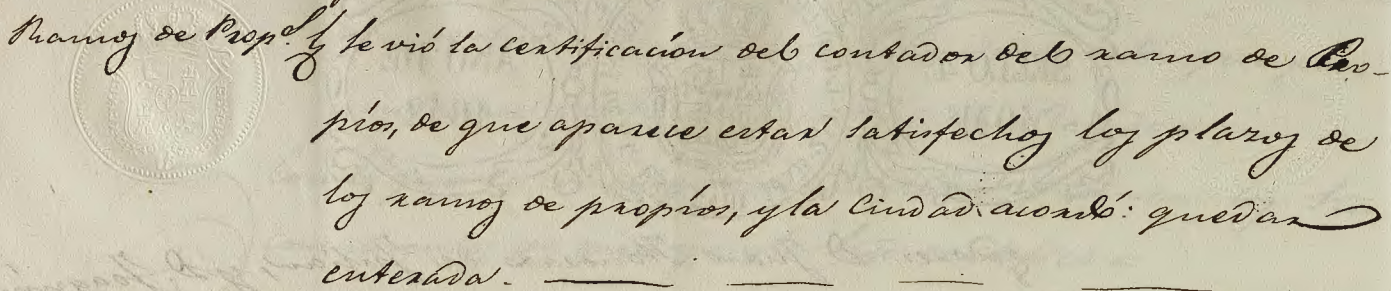 Ramos de Prop.s Se vió la certificacion del contador del ramo de Pro-
pios, de que aparece estar satisfechos los plazos de
los ramos de propios, y la Ciudad acordó: quedar
enterada.